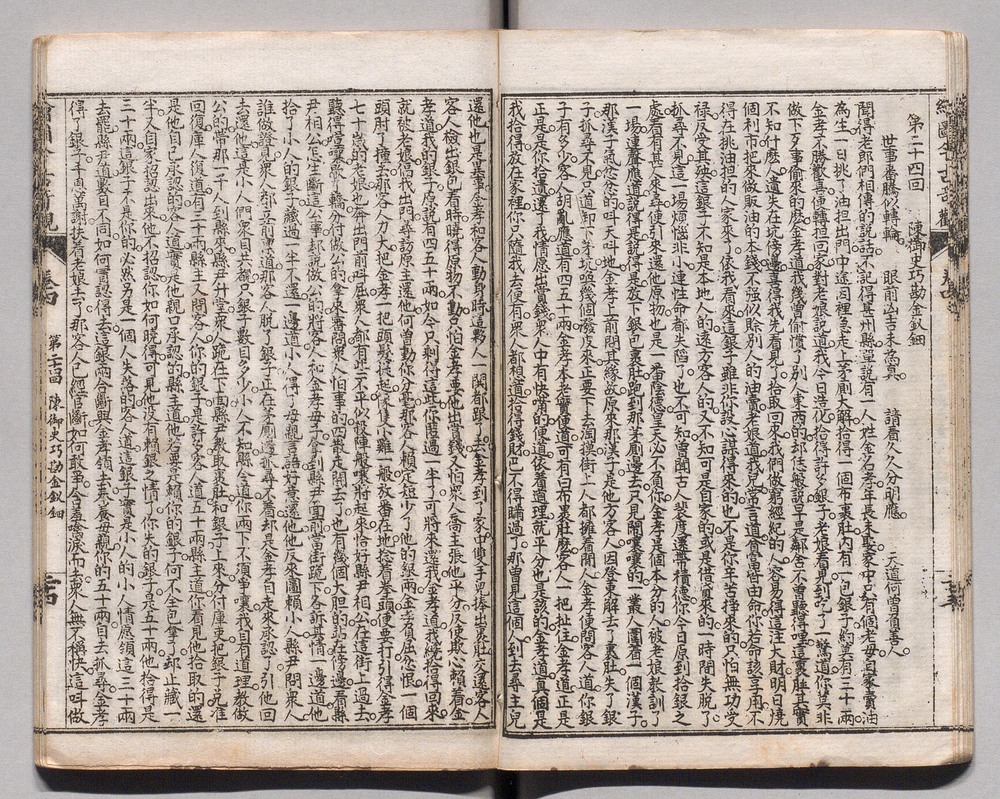 第二十四回 陳御史巧勘金釵鈿
世事番騰似轉輪 眼前凶吉未為真 請看久久分明應 天道何曾負善人
聞得老郎們相傳的說話不記得甚州縣單說有一人姓金名孝年長未娶家中只有個老母自家賣油
為生一日挑了油担出門中途因裡急走上茅廁大解拾得一個布裹肚內有一包銀子約莫有三十兩
金孝不勝歡喜便轉担回家對老娘說道我今日造化拾得許多銀子老娘看見到吃了一驚道你莫非
做下歹事偷來的麽金孝道我幾曾偷慣了別人東西的卻恁般說早是鄰舍不曾聽得哩這裹肚其實
不知什麽人遺失在坑傍邊喜得我先看見了拾取回來我們做窮經紀的人容易得這注大財明日燒
個利市把來做販油的本錢不強似賒別人的油賣老娘道我兒常言道貧富皆由命你若命該享用不
得在挑油担的人家來了依我看來這銀子雖非你設心謀得來的也不是你辛苦掙來的只怕無功受
祿反受其殃這銀子不知是本地人的遠方客人的又不知可是自家的或是借貸來的一時間失脫了
抓尋不見這一場煩惱非小連性命都失陷了也不可知曾聞古人裴度還帶積德你今日原到拾銀之
處看有甚人來尋便引來還他原物也是一番陰德皇天必不負你金孝是個本分的人被老娘教訓了
一場連聲應道說得是說得是放下銀包裹肚跑到那茅廁邊去只見鬧嚷嚷的一叢人圍着一個漢子
那漢子氣忿忿的叫天叫地金孝上前問其緣故原來那漢子是他方客人因登東解脫了裹肚失了銀
子抓尋不見只道卸下茅坑喚幾個潑皮來正要下去淘摸街上人都擁着閒看金孝便問客人道你銀
子有多少客人胡亂應道有四五十兩金孝老實便道可有白布裹肚麽客人一把扯住金孝道正是
正是是你拾着還了我情愿出賞錢眾人中有快嘴的便道依着道理就平分也是該的金孝道真個是
我拾得放在家裡你只隨我去便有眾人都想道拾得錢財巴不得瞞過了那曾見這個人到去尋主兒
還他也是異事金孝和客人動身時這夥人一鬨都跟了去金孝到了家中雙手兒捧出裹肚交還客人
客人檢出銀包看時曉得原物不動只怕金孝要他出賞錢又怕眾人喬主張他平分反使欺心賴着金
孝道我的銀子原說有四五十兩如今只剩得這些你匿過一半了可將來還我金孝道我纔拾得回來
就被老娘偪我出門尋訪原主還他何曾動你分毫那客人賴定短少了他的銀兩金孝負屈忿恨一個
頭肘子撞去那客人力大把金孝一把頭髮提起像隻小雞一般放番在地捻着拳頭便要打引得金孝
七十歲的老娘也奔出門前叫屈眾人都有些不平似殺陣般嚷將起來恰好縣尹相公在這街上過去
聽得喧嚷歇了轎分付做公的拿來審問眾人怕事的四散走開去了也有幾個大胆的站在傍邊看縣
尹相公怎生斷這公事却說做公的將客人和金孝母子拿到縣尹面前當街跪下各訴其情一邊道他
拾了小人的銀子藏過一半不還一邊道小人聽了母親言語好意還他他反來圖賴小人縣尹問眾人
誰做證見眾人都上前稟道那客人脫了銀子正在茅廁邊抓尋不着却是金孝自走來承認了引他回
去還他這是小人們眾目共覩只銀子數目多少小人不知縣令道你兩下不須爭嚷我自有道理教做
公的帶那一干人到縣來縣尹升堂眾人跪在下面縣尹教取裹肚和銀子上來分付庫吏把銀子兌准
回復庫吏復道有三十兩縣主又問客人你的銀子是許多客人道五十兩縣主道你看見他拾取的還
是他自己承認的客人道實是他親口承認的縣主道他若是要賴你的銀子何不全包拿了却止藏一
半又自家招認出來他不招認你如何曉得可見他沒有賴銀之情了你失的銀子是五十兩他拾得是
三十兩這銀子不是你的必然另是一個人失落的客人道這銀子實是小人的小人情愿領這三十兩
去罷縣尹道數目不同如何冒認得去這銀兩合斷與金孝領去奉養母親你的五十兩自去抓尋金孝
得了銀子千恩萬謝扶着老娘去了那客人已經官斷如何敢爭含羞噙淚而去眾人無不稱快這叫做
第二十四回 陳御史巧勘金釵鈿